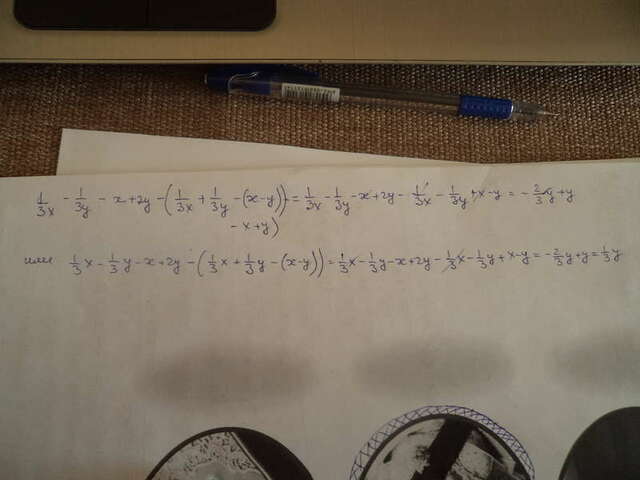 1/3x - 1/3y - x+2y - (1/3x + 1/3y - (x-y)) = 1/3x - 1/3y - x + 2y - 1/3x - 1/3y + x - y = - 2/3y + y
- x + y)
или 1/3 x - 1/3 y - x + 2y - (1/3 x + 1/3 y - (x-y)) = 1/3 x - 1/3 y - x + 2y - 1/3 x - 1/3 y + x - y = - 2/3 y + y = 1/3 y